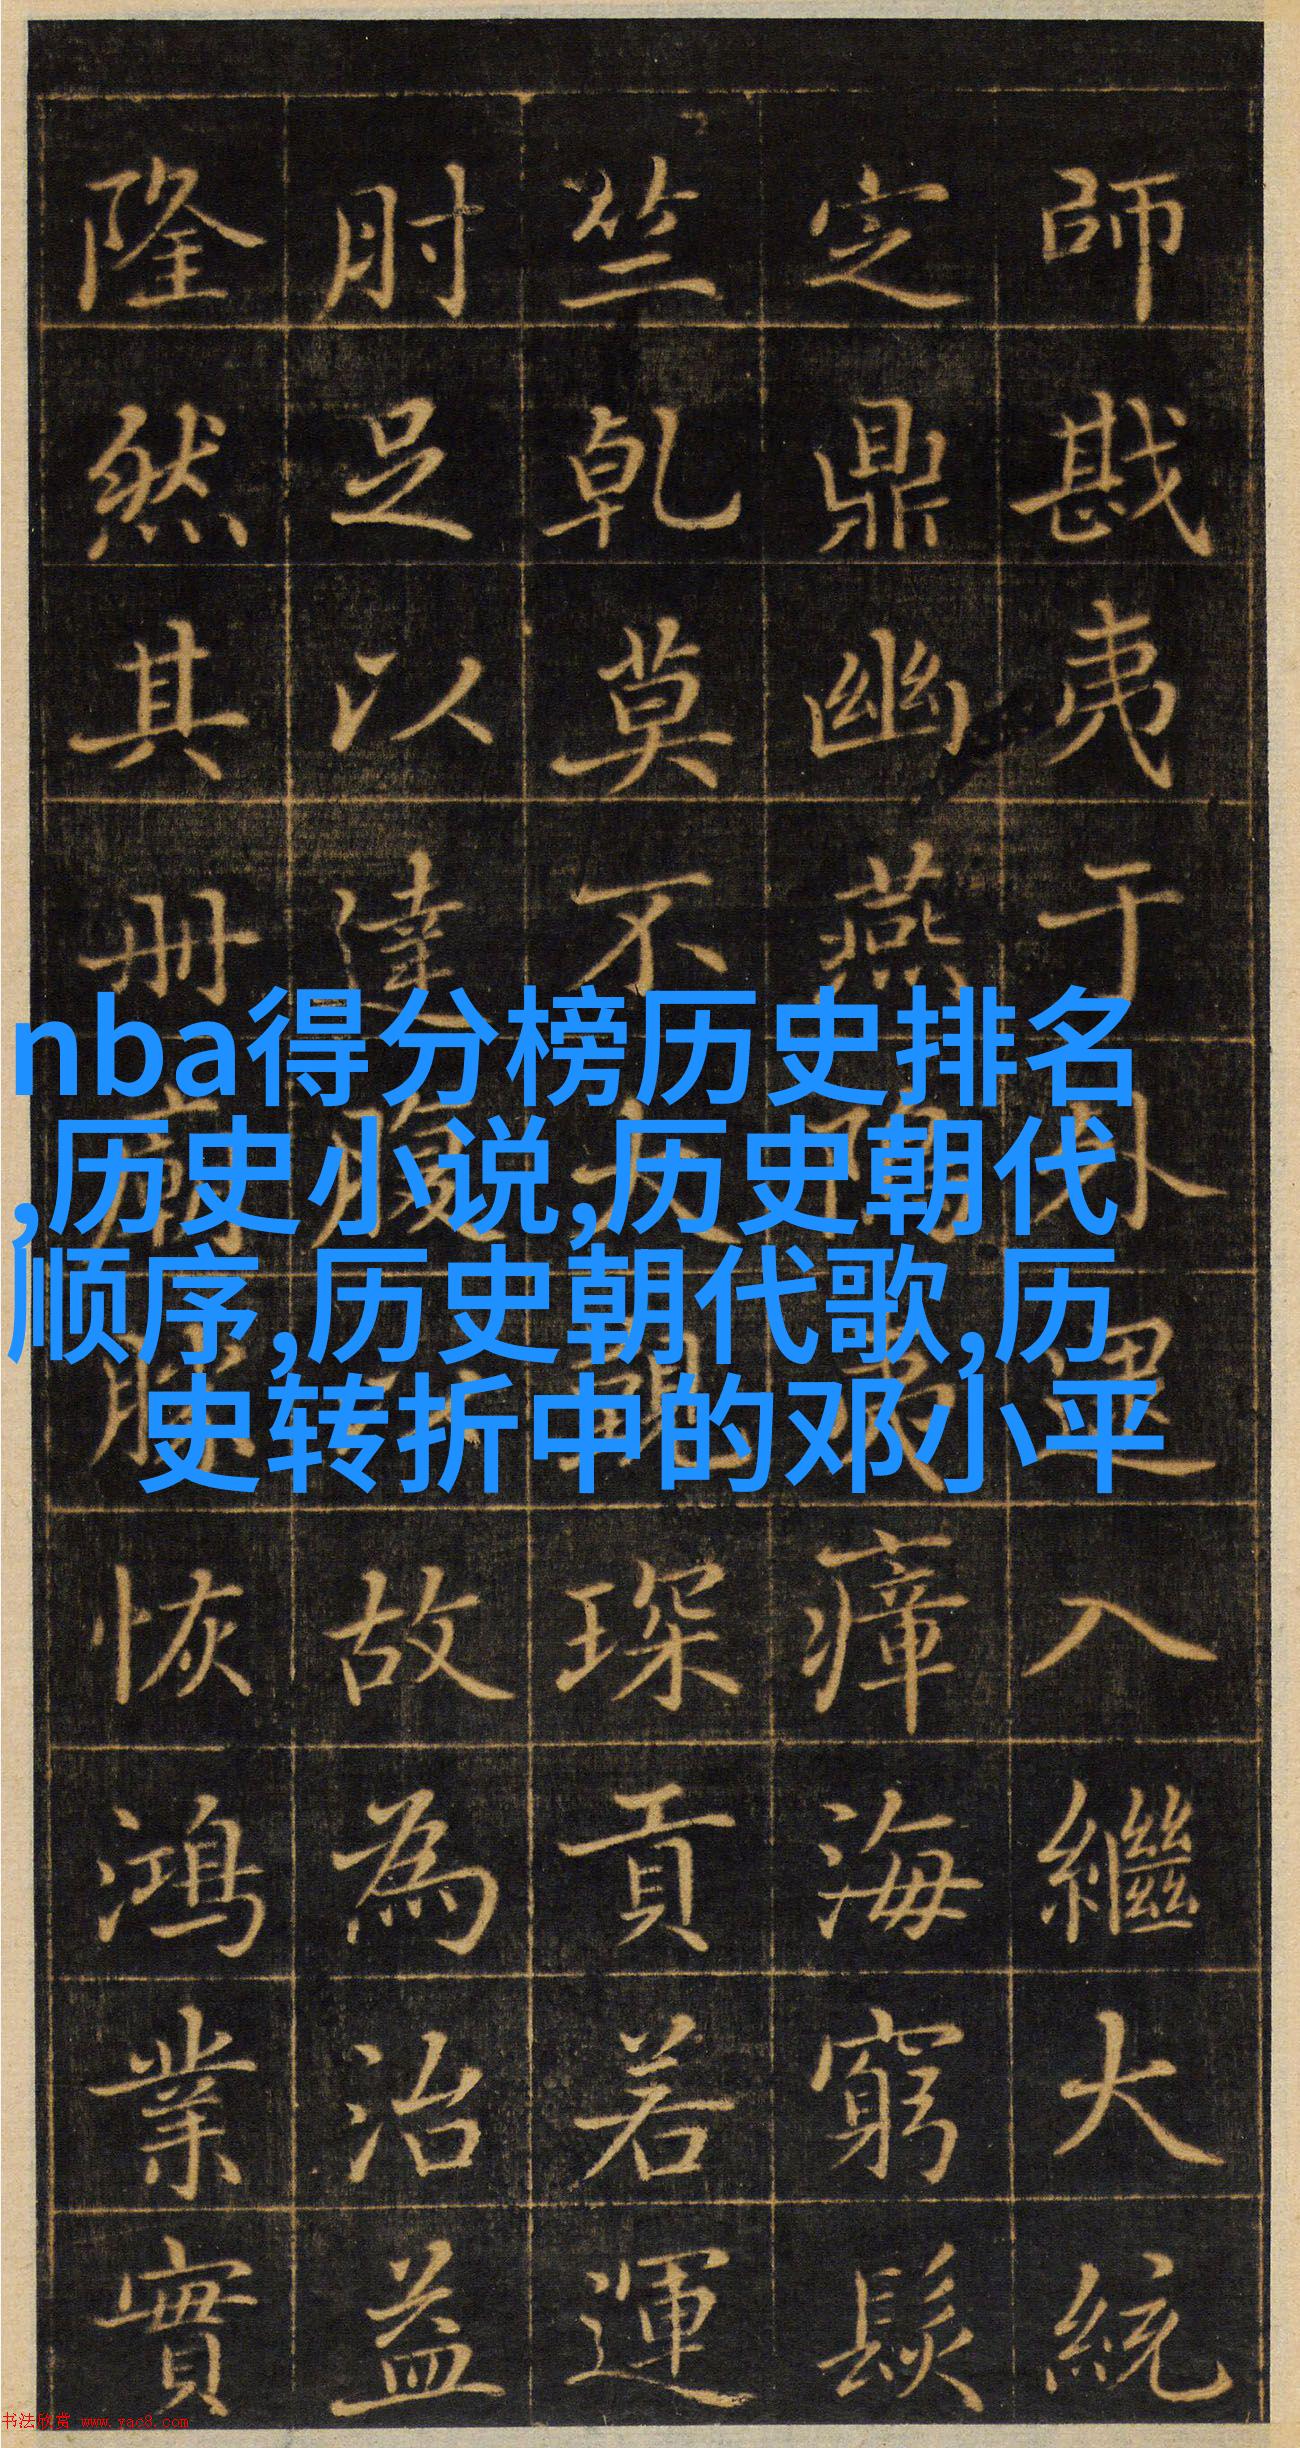 師戡夷于外還入繼大統
定鼎幽燕瘴海窮髮
竺乾莫不琛貢若運
肘足以達腹心故為治益
隆然其冊恢鴻業實
nba得分榜历史排名
,历史小说,历史朝代
顺序,历史朝代歌,历
史转折中的邓小平
书法欣赏 www.yac8.com